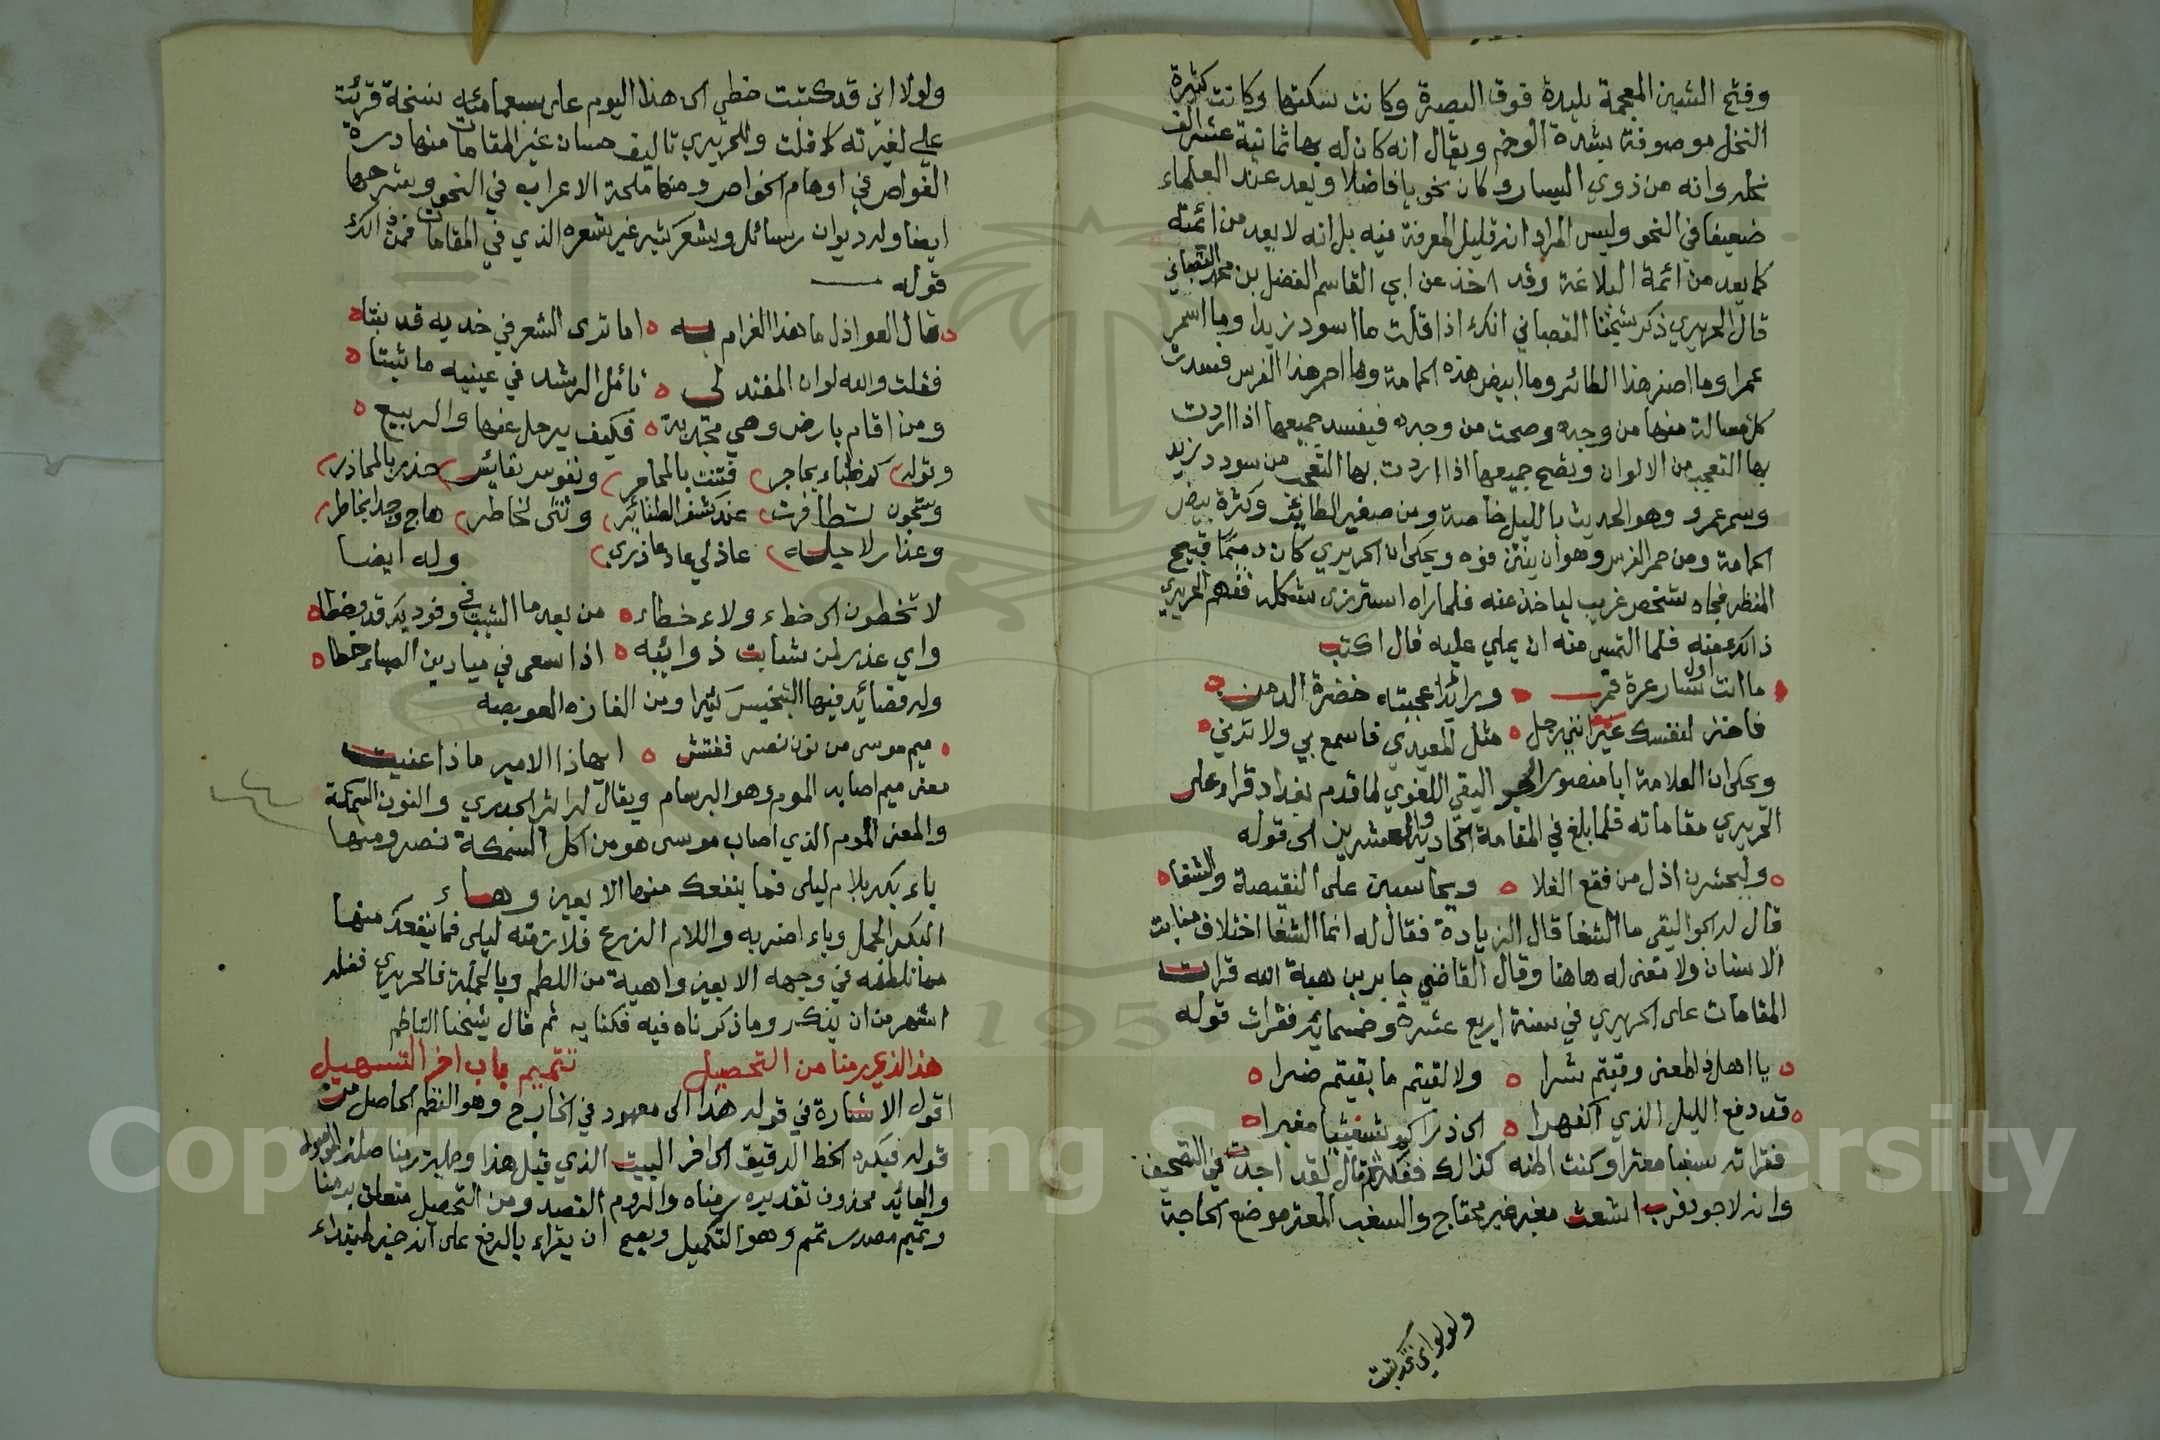 وفتح الشين المعجمة بليدة فوق البصرة وكانت سكنها وكانت كثيرة
النخل موصوفة بشدة الوخم ويقال انه كان له بها ثمانية عشر الف
نخله وانه من ذوي اليسار وكان نحويا فاضلا ويعد عند العلماء
ضعيفا في النحو وليس المراد انه قليل المعرفة فيه بل انه لا يعد من ائمته
كما يعد من ائمة البلاغة وقد اخذ عن ابي القاسم الفضل بن محمد القصباني
قال الحريري ذكر شيخنا القصباني انك اذا قلت ما اسود زيدا وما اسمر
عمرا وما اصفر هذا الطائر وما ابيض هذه الحمامة وما احمر هذا الفرس فسدت
كل مسالة منها من وجه وصحت من وجه فيفسد جميعها اذا اردت
بها التعجب من الالوان ويصح جميعها اذا اردت بها التعجب من سودد زيد
وسمر عمرو وهو الحديث بالليل خاصة ومن صفير الطائر وكثرة بيض
الحمامة ومن حمر الفرس وهو ان ينتن فوه ويحكى ان الحريري كان دميما قبيح
المنظر فجاه شخص غريب لياخذ عنه فلما راه استزرى شكله ففهم الحريري
ذالك منه فلما التمس منه ان يملي عليه قال اكتب
ما انت اول سار غره قمر ورائد اعجبته خضرة الدمن
فاختر لنفسك غيري انني رجل مثل المعيدي فاسمع بي ولا ترني
ويحكى ان العلامة ابا منصور الجواليقي اللغوي لما قدم بغداد قراء على
الحريري مقاماته فلما بلغ في المقامة الحادية والعشرين الى قوله
وليحشرن اذل من فقع الفلا ويحاسبن على النقيصة والشغا
قال له الجواليقي ما الشغا قال الزيادة فقال له انما الشغا اختلاف منابت
الاسنان ولا معنى له هاهنا وقال القاضي جابر بن هبة الله قرات
المقامات على الحريري في سنة اربع عشرة وخمسمايه فقرات قوله
يا اهل ذا المعنى وقيتم شرا ولا لقيتم ما بقيتم ضرا
قد دفع الليل الذي اكفهرا الى ذراكم شعثا مغبرا
فقراته سغبا معترا وكنت اظنه كذالك ففكر ثم قال لقد اجدت في التصحيف
وانه لاجود فرب اشعث مغبر غير محتاج والسغب المعتر موضع الحاجة
ولولا اني قد كتبت
ولولا اني قد كتبت خطي الى هذا اليوم على سبعمائه نسخة قرئت
علي لغيرته كما قلت وللحريري تاليف حسان غير المقامات منها درة
الغواص في اوهام الخواص ومنها ملحة الاعراب في النحو وشرحها
ايضا وله ديوان رسائل وشعر كثير غير شعره الذي في المقامات فمن ذالك
قوله
قال العواذل ما هذا الغرام به اما ترى الشعر في خديه قد نبتا
فقلت والله لو ان المفند لي تأمل الرشد في عينيه ما ثبتا
ومن اقام بارض وهي مجدبة فكيف يرحل عنها والربيع
وقوله كم ظباء بحاجر فتنت بالمحاجر ونفوس نفائس حذر بالمحاذر
وشجون تظافرت عند كشف الظفائر وتثني لخاطر هاج وجدا بخاطر
وعذار لاجله عاذلي عاد عاذري وله ايضا
لا تخطون الى خطء ولا خطاء من بعد ما الشيب في فوديك قد وخطا
واي عذر لمن شابت ذوائبه اذا سعى في ميادين الصباء وخطا
وله قصائد فيها التجنيس كثيرا ومن الغازه العويصه
ميم موسى من نون نصر ففتش ايهاذا الامير ماذا عنيت
معنى ميم اصابه الموم وهو البرسام ويقال له اثر الجدري والنون السمكة
والمعنى الموم الذي اصاب موسى هو من اكل السمكة نصر ومنها
باء بكر بلام ليلى فما ينفعك منها الا بعين وهاء
البكر الجمل وباء اضر به واللام الدرع فلازمته ليلى فما ينفعك منها
في وجهه الا بعين واهية من اللطم وبالجملة فالحريري فضله
اشهر من ان يذكر وما ذكرناه فيه فكنايه ثم قال شيخنا الناظم
هذا الذي رمنا من التحصيل تتميم باب اخر التسهيل
اقول الاشارة في قوله هذا الى معهود في الخارج وهو النظم الحاصل من
قوله الخط الدقيق الى اخر البيت الذي قبل هذا وجملة رمنا صلة الموصول
والعائد محذوف تقديره رمناه والروم القصد ومن التحصيل متعلق برمنا
وتتميم مصدر تمم وهو التكميل ويصح ان يقراء بالرفع على انه خبر لمبتداء